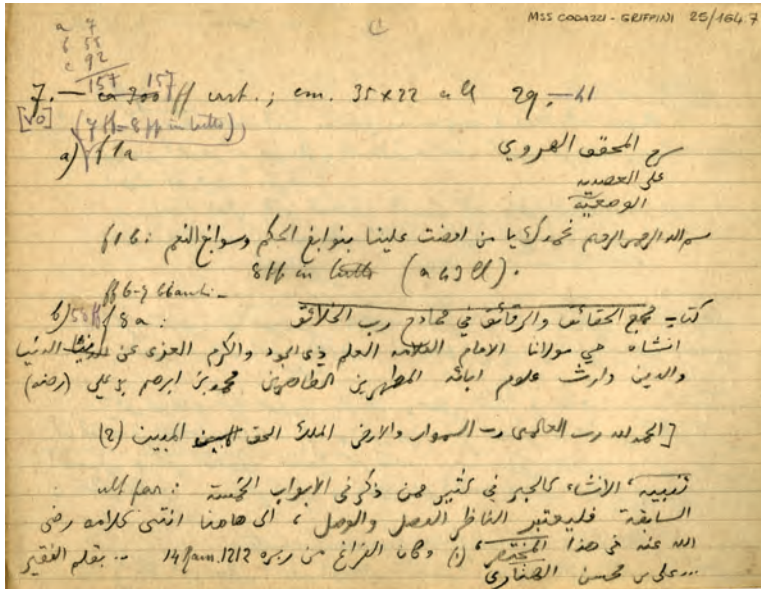 MSS CODAZZI - GRIFFINI 25/164.7
a 7
b 58
c 92
157 157
7. — ca 300 ff cart.; cm. 35x22 a ll 29-41
[70] (7 ff = 8 pp in tutto)
a) f 1a شرح المحقق الهروي
على العضديه
الوضعية
f 1b: بسم الله الرحمن الرحيم نحمدك يا من افضت علينا بنوابغ الحكم وسوابغ النعم
8 pp in tutto (a 43 ll).
ff 6-7 bianchi -
b) 58 ff f 8a: كتاب مجمع الحقائق والرقائق في ممادح رب الخلائق
انشاه حي مولانا الامام العلامه العلم ذي الجود والكرم العزى عن الدنيا
والدين وارث علوم ابائه المطهرين الطاهرين محمد بن ابرهيم بن علي (رضه)
[الحمد لله رب العالمين رب السموات والارض الملك الحق المبين (2)
ult par: تنبيه، الانشاء كالخبر في كثير ممن ذكر في الابواب الخمسة
السابقة فليعتبر الناظر الفصل والوصل، الى هاهنا انتهى كلامه رضى
الله عنه في هذا المختصر، (i) وكان الفراغ من زبره 14 Jam. 1212 ... بقلم الفقير
... على بن محسن